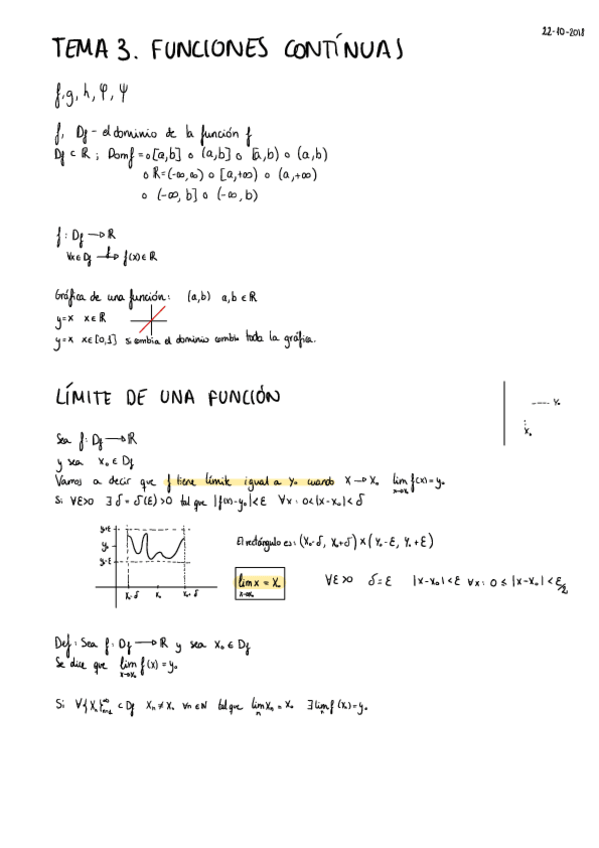 22-10-2018
TEMA 3. FUNCIONES CONTÍNUAS
f, g, h, φ, ψ
f, Df - el dominio de la función f
Df ⊂ ℝ ; Dom f = o [a,b] o (a,b] o [a,b) o (a,b)
o ℝ=(-∞,∞) o [a,+∞) o (a,+∞)
o (-∞, b] o (-∞, b)
f : Df → ℝ
∀x∈Df → f(x)∈ℝ
Gráfica de una función: (a,b) a,b ∈ ℝ
y=x x∈ℝ
y=x x∈[0,1] si cambia el dominio cambia toda la gráfica.
LÍMITE DE UNA FUNCIÓN
y₀
x₀
Sea f: Df → ℝ
y sea x₀ ∈ Df
Vamos a decir que f tiene límite igual a y₀ cuando x → x₀ lim f(x) = y₀
x→x₀
Si ∀ε>0 ∃ δ = δ(ε) > 0 tal que |f(x)-y₀| < ε ∀x: 0<|x-x₀|< δ
y₀+ε
y₀
y₀-ε
x₀-δ x₀ x₀+δ
El rectángulo es: (x₀-δ, x₀+δ) × (y₀-ε, y₀+ε)
lim x = x₀ ∀ε>0 δ=ε |x-x₀|<ε ∀x: 0 ≤ |x-x₀| < ε/2
x→x₀
Def: Sea f: Df → ℝ y sea x₀ ∈ Df
Se dice que lim f(x) = y₀
x→x₀
Si ∀{xₙ}ₙ₌₁^∞ ⊂ Df xₙ ≠ x₀ ∀n∈ℕ tal que lim xₙ = x₀ ∃ lim f(xₙ) = y₀
n n